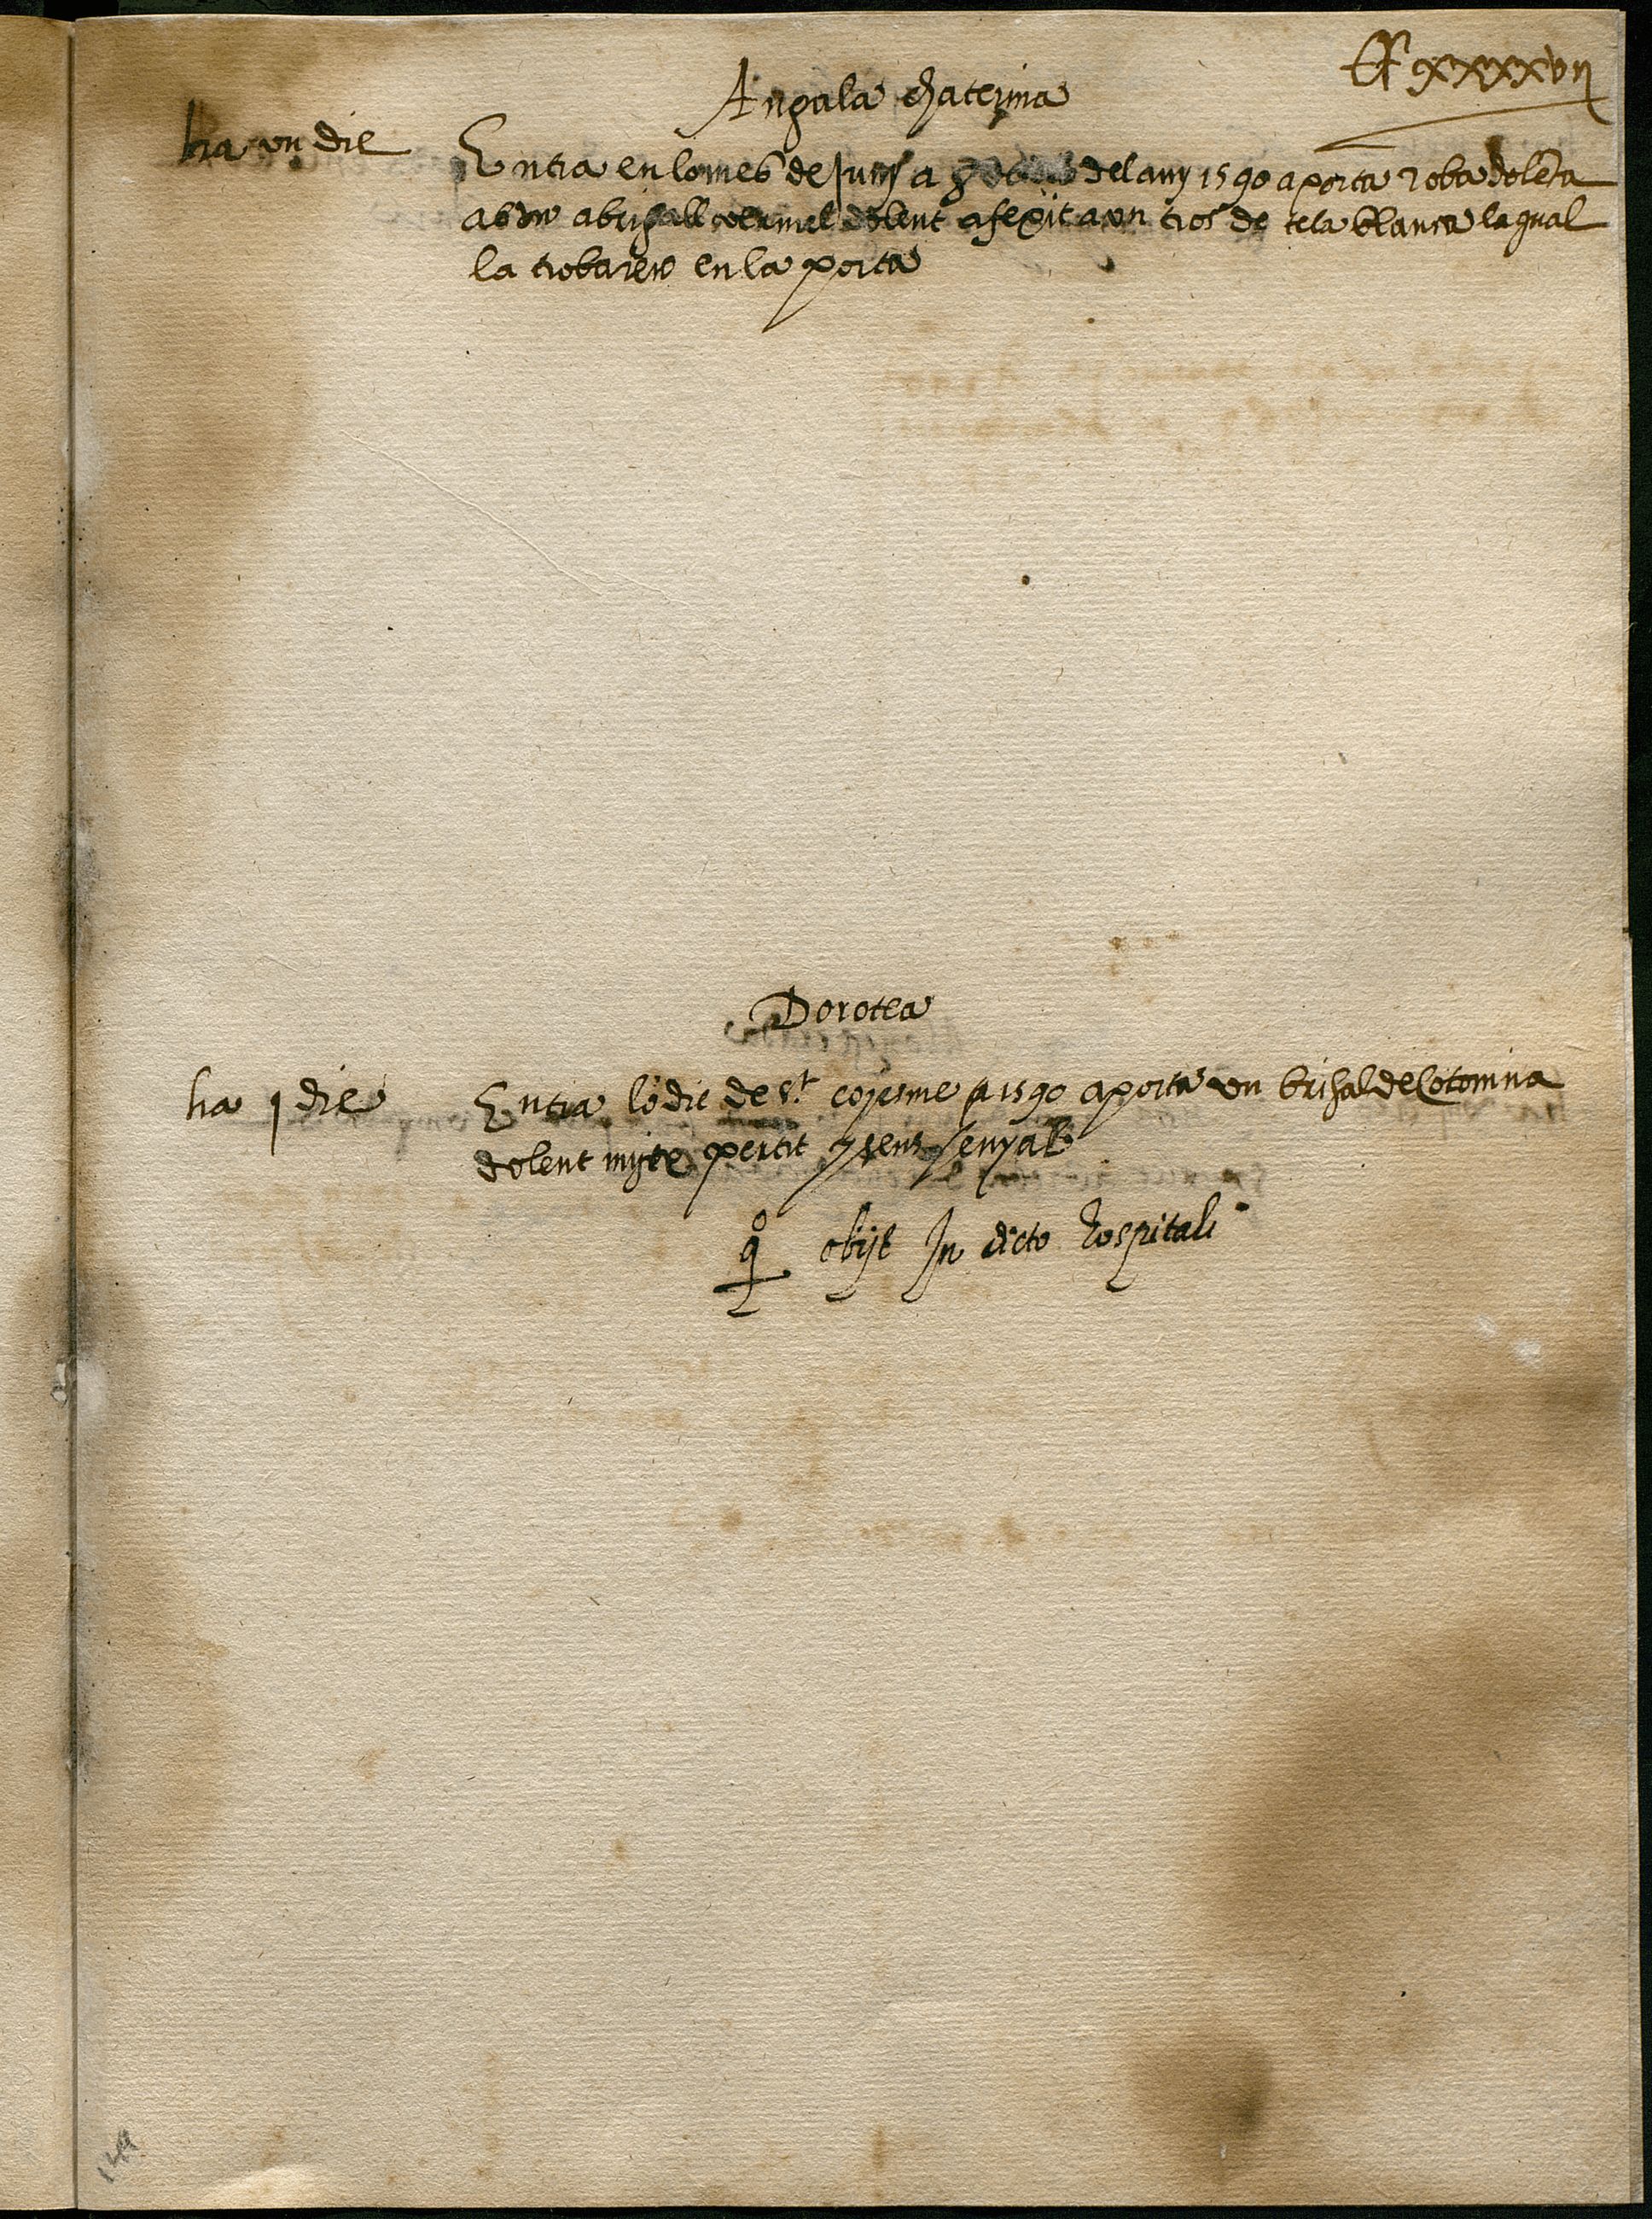 xxxxvii
Angala chaterina
ha un die
Entra en lo mes de Juny a 8 del any 1590 aporta roba dolenta
ab un abrigall vermel dolent afegit a un tros de tela blanca laqual
la trobaren en la porta
Dorotea
ha j die
Entra lo die de st cojesme a 1590 aporta un brigal de Cotonina
dolent mige pertit y sens senyal
obijt In dicto hospitali